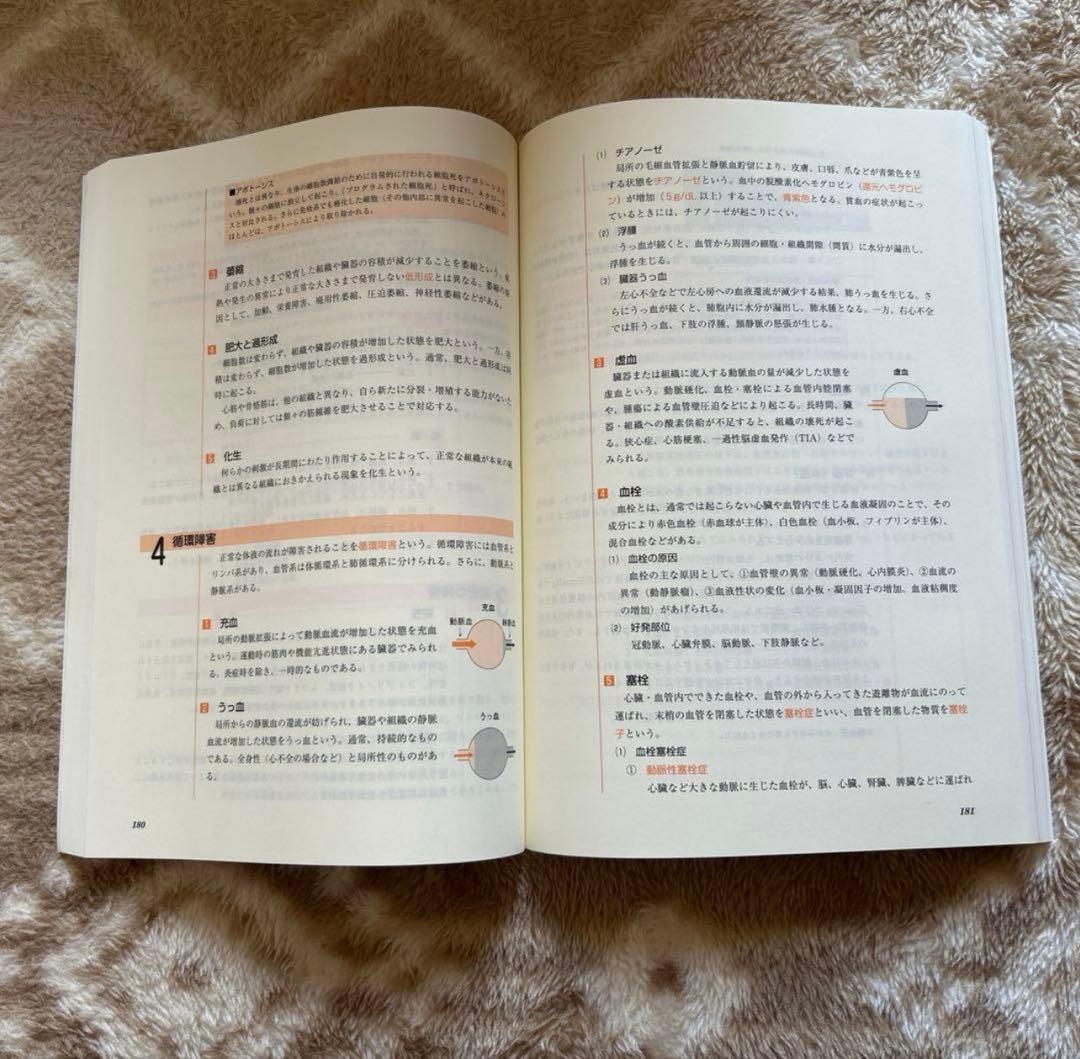 ■アポトーシス
壊死とは異なり、生体の細胞数調節のために自発的に行われる細胞死をアポトーシスと
いう。個々の細胞に独立して起こり、「プログラムされた細胞死」と呼ばれ、ネクローシ
スと対比される。さらに免疫系でも癌化した細胞（その他内部に異常を起こした細胞）の
ほとんどは、アポトーシスにより取り除かれる。
3 萎縮
正常の大きさまで発育した組織や臓器の容積が減少することを萎縮という。
熱や発生の異常により正常な大きさまで発育しない低形成とは異なる。萎縮の原
因として、加齢、栄養障害、廃用性萎縮、圧迫萎縮、神経性萎縮などがある。
4 肥大と過形成
細胞数は変わらず、組織や臓器の容積が増加した状態を肥大という。一方、容
積は変わらず、細胞数が増加した状態を過形成という。通常、肥大と過形成は同
時に起こる。
心筋や骨格筋は、他の組織と異なり、自ら新たに分裂・増殖する能力がないた
め、負荷に対しては個々の筋線維を肥大させることで対応する。
5 化生
何らかの刺激が長期間にわたり作用することによって、正常な組織が本来の組
織とは異なる組織におきかえられる現象を化生という。
4 循環障害
正常な体液の流れが障害されることを循環障害という。循環障害には血管系と
リンパ系があり、血管系は体循環系と肺循環系に分けられる。さらに、動脈系と
静脈系がある。
1 充血
局所の動脈拡張によって動脈血流が増加した状態を充血
という。運動時の筋肉や機能亢進状態にある臓器でみられ
る。炎症時を除き、一時的なものである。
充血
動脈血
静脈血
2 うっ血
局所からの静脈血の還流が妨げられ、臓器や組織の静脈
血流が増加した状態をうっ血という。通常、持続的なもの
である。全身性（心不全の場合など）と局所性のものがあ
る。
うっ血
180
(1) チアノーゼ
局所の毛細血管拡張と静脈血貯留により、皮膚、口唇、爪などが青紫色を呈
する状態をチアノーゼという。血中の脱酸素化ヘモグロビン（還元ヘモグロビ
ン）が増加（5g/dL以上）することで、青紫色となる。貧血の症状が起こっ
ているときには、チアノーゼが起こりにくい。
(2) 浮腫
うっ血が続くと、血管から周囲の細胞・組織間隙（間質）に水分が漏出し、
浮腫を生じる。
(3) 臓器うっ血
左心不全などで左心房への血液還流が減少する結果、肺うっ血を生じる。さ
らにうっ血が続くと、肺胞内に水分が漏出し、肺水腫となる。一方、右心不全
では肝うっ血、下肢の浮腫、頸静脈の怒張が生じる。
3 虚血
臓器または組織に流入する動脈血の量が減少した状態を
虚血という。動脈硬化、血栓・塞栓による血管内腔閉塞
や、腫瘍による血管壁圧迫などにより起こる。長時間、臓
器・組織への酸素供給が不足すると、組織の壊死が起こ
る。狭心症、心筋梗塞、一過性脳虚血発作（TIA）などで
みられる。
虚血
4 血栓
血栓とは、通常では起こらない心臓や血管内で生じる血液凝固のことで、その
成分により赤色血栓（赤血球が主体）、白色血栓（血小板、フィブリンが主体）、
混合血栓などがある。
(1) 血栓の原因
血栓の主な原因として、①血管壁の異常（動脈硬化、心内膜炎）、②血流の
異常（動静脈瘤）、③血液性状の変化（血小板・凝固因子の増加、血液粘稠度
の増加）があげられる。
(2) 好発部位
冠動脈、心臓弁膜、脳動脈、下肢静脈など。
5 塞栓
心臓・血管内でできた血栓や、血管の外から入ってきた遊離物が血流にのって
運ばれ、末梢の血管を閉塞した状態を塞栓症といい、血管を閉塞した物質を塞栓
子という。
(1) 血栓塞栓症
① 動脈性塞栓症
心臓など大きな動脈に生じた血栓が、脳、心臓、腎臓、脾臓などに運ばれ
181